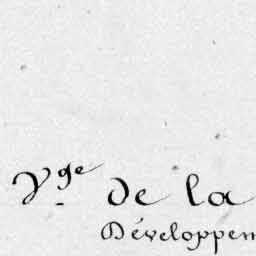 Vge de la
Développem